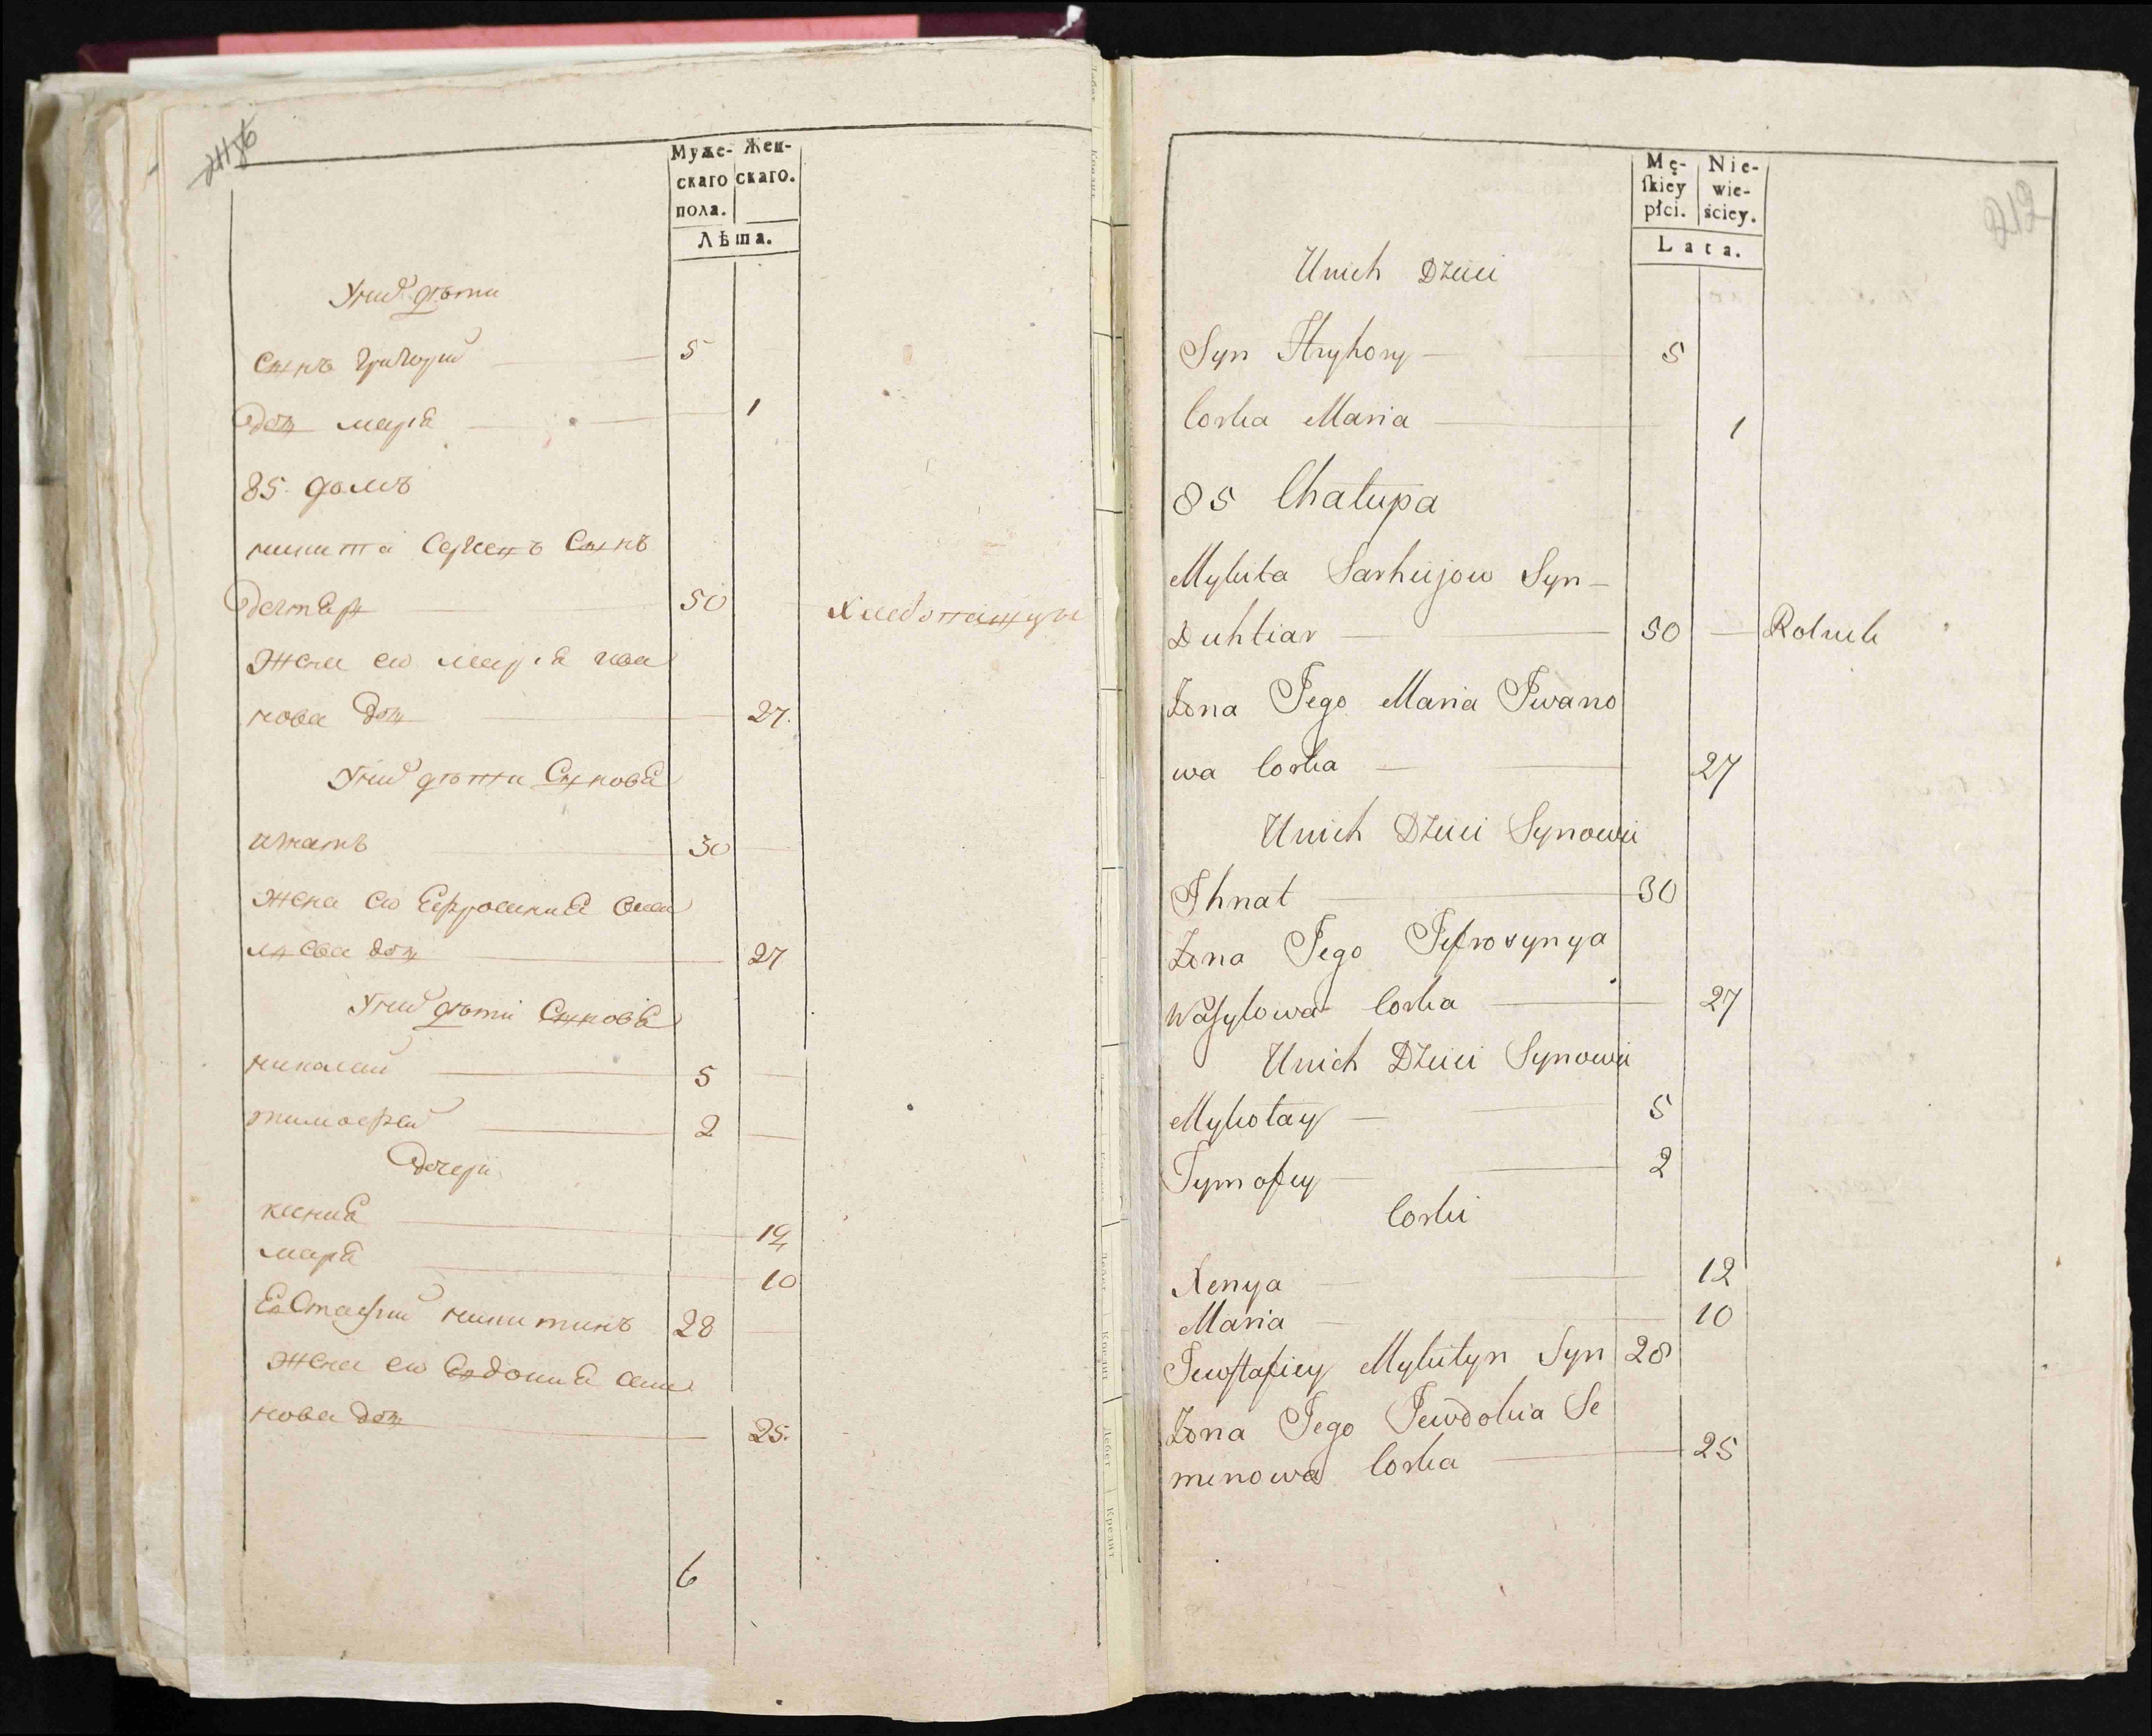 Муже-
скаго
пола.
Жен-
скаго.
Лѣта.
Уних дѣти
Сынъ Григорий 5
Доч мария 1
85. домъ
никита Сергеевъ Сынъ
Дегтяр 50 Хлебопашцы
Жена ею мария ива
нова доч 27.
Уних дѣти Сыновя
игнатъ 30
Жена ею Ефросиния
доч 27
Уних дѣти Сыновя
николай 5
тимофей 2
Дочери
ксения 12
маря 10
Евстафий никитинъ 28
Жена ею Евдокия семе
нова доч 25.
6
Mę-
skiey
płci.
Nie-
wie-
ściey.
Lata.
Unich Dzieci
Syn Hryhory 5
Corka Maria 1
85 Chałupa
Mykita Sarhiejow Syn
Duhtiar 50 Rolnik
Zona Jego Maria Jwano
wa Corka 27
Unich Dzieci Synowie
Jhnat 30
Zona Jego Jefrosynya
Wasylowa Corka 27
Unich Dzieci Synowie
Mykołay 5
Tymofiey 2
Corki
Xenya 12
Maria 10
Jewstafiey Mykityn Syn 28
Zona Jego Jewdokia Se
menowa Corka 25